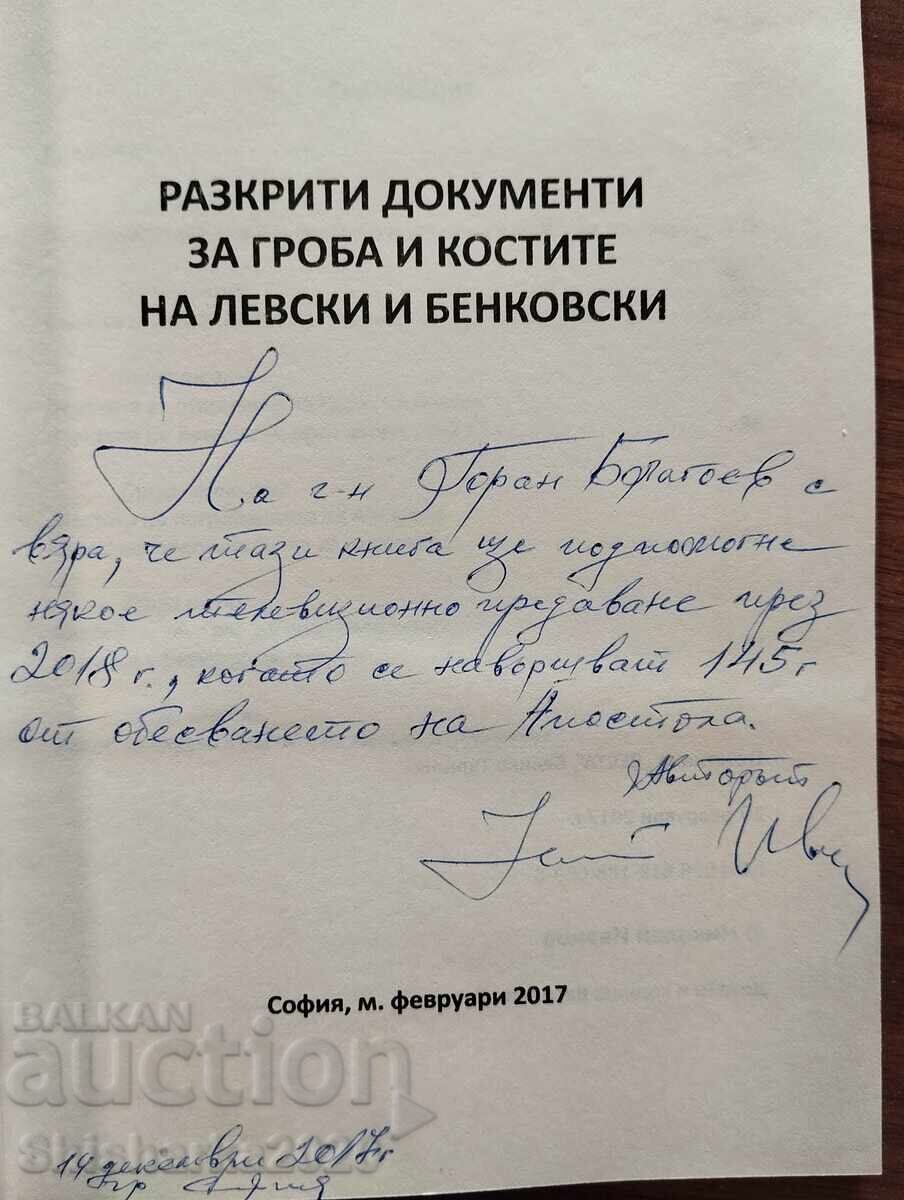 РАЗКРИТИ ДОКУМЕНТИ
ЗА ГРОБА И КОСТИТЕ
НА ЛЕВСКИ И БЕНКОВСКИ
На г-н Горан с
вяра, че тази книга ще подпомогне
някое телевизионно предаване през
2018 г., когато се навършват 145 г
от обесването на Апостола.
Авторът
София, м. февруари 2017
BALKAN
auction
14 декември 2017 г
гр София